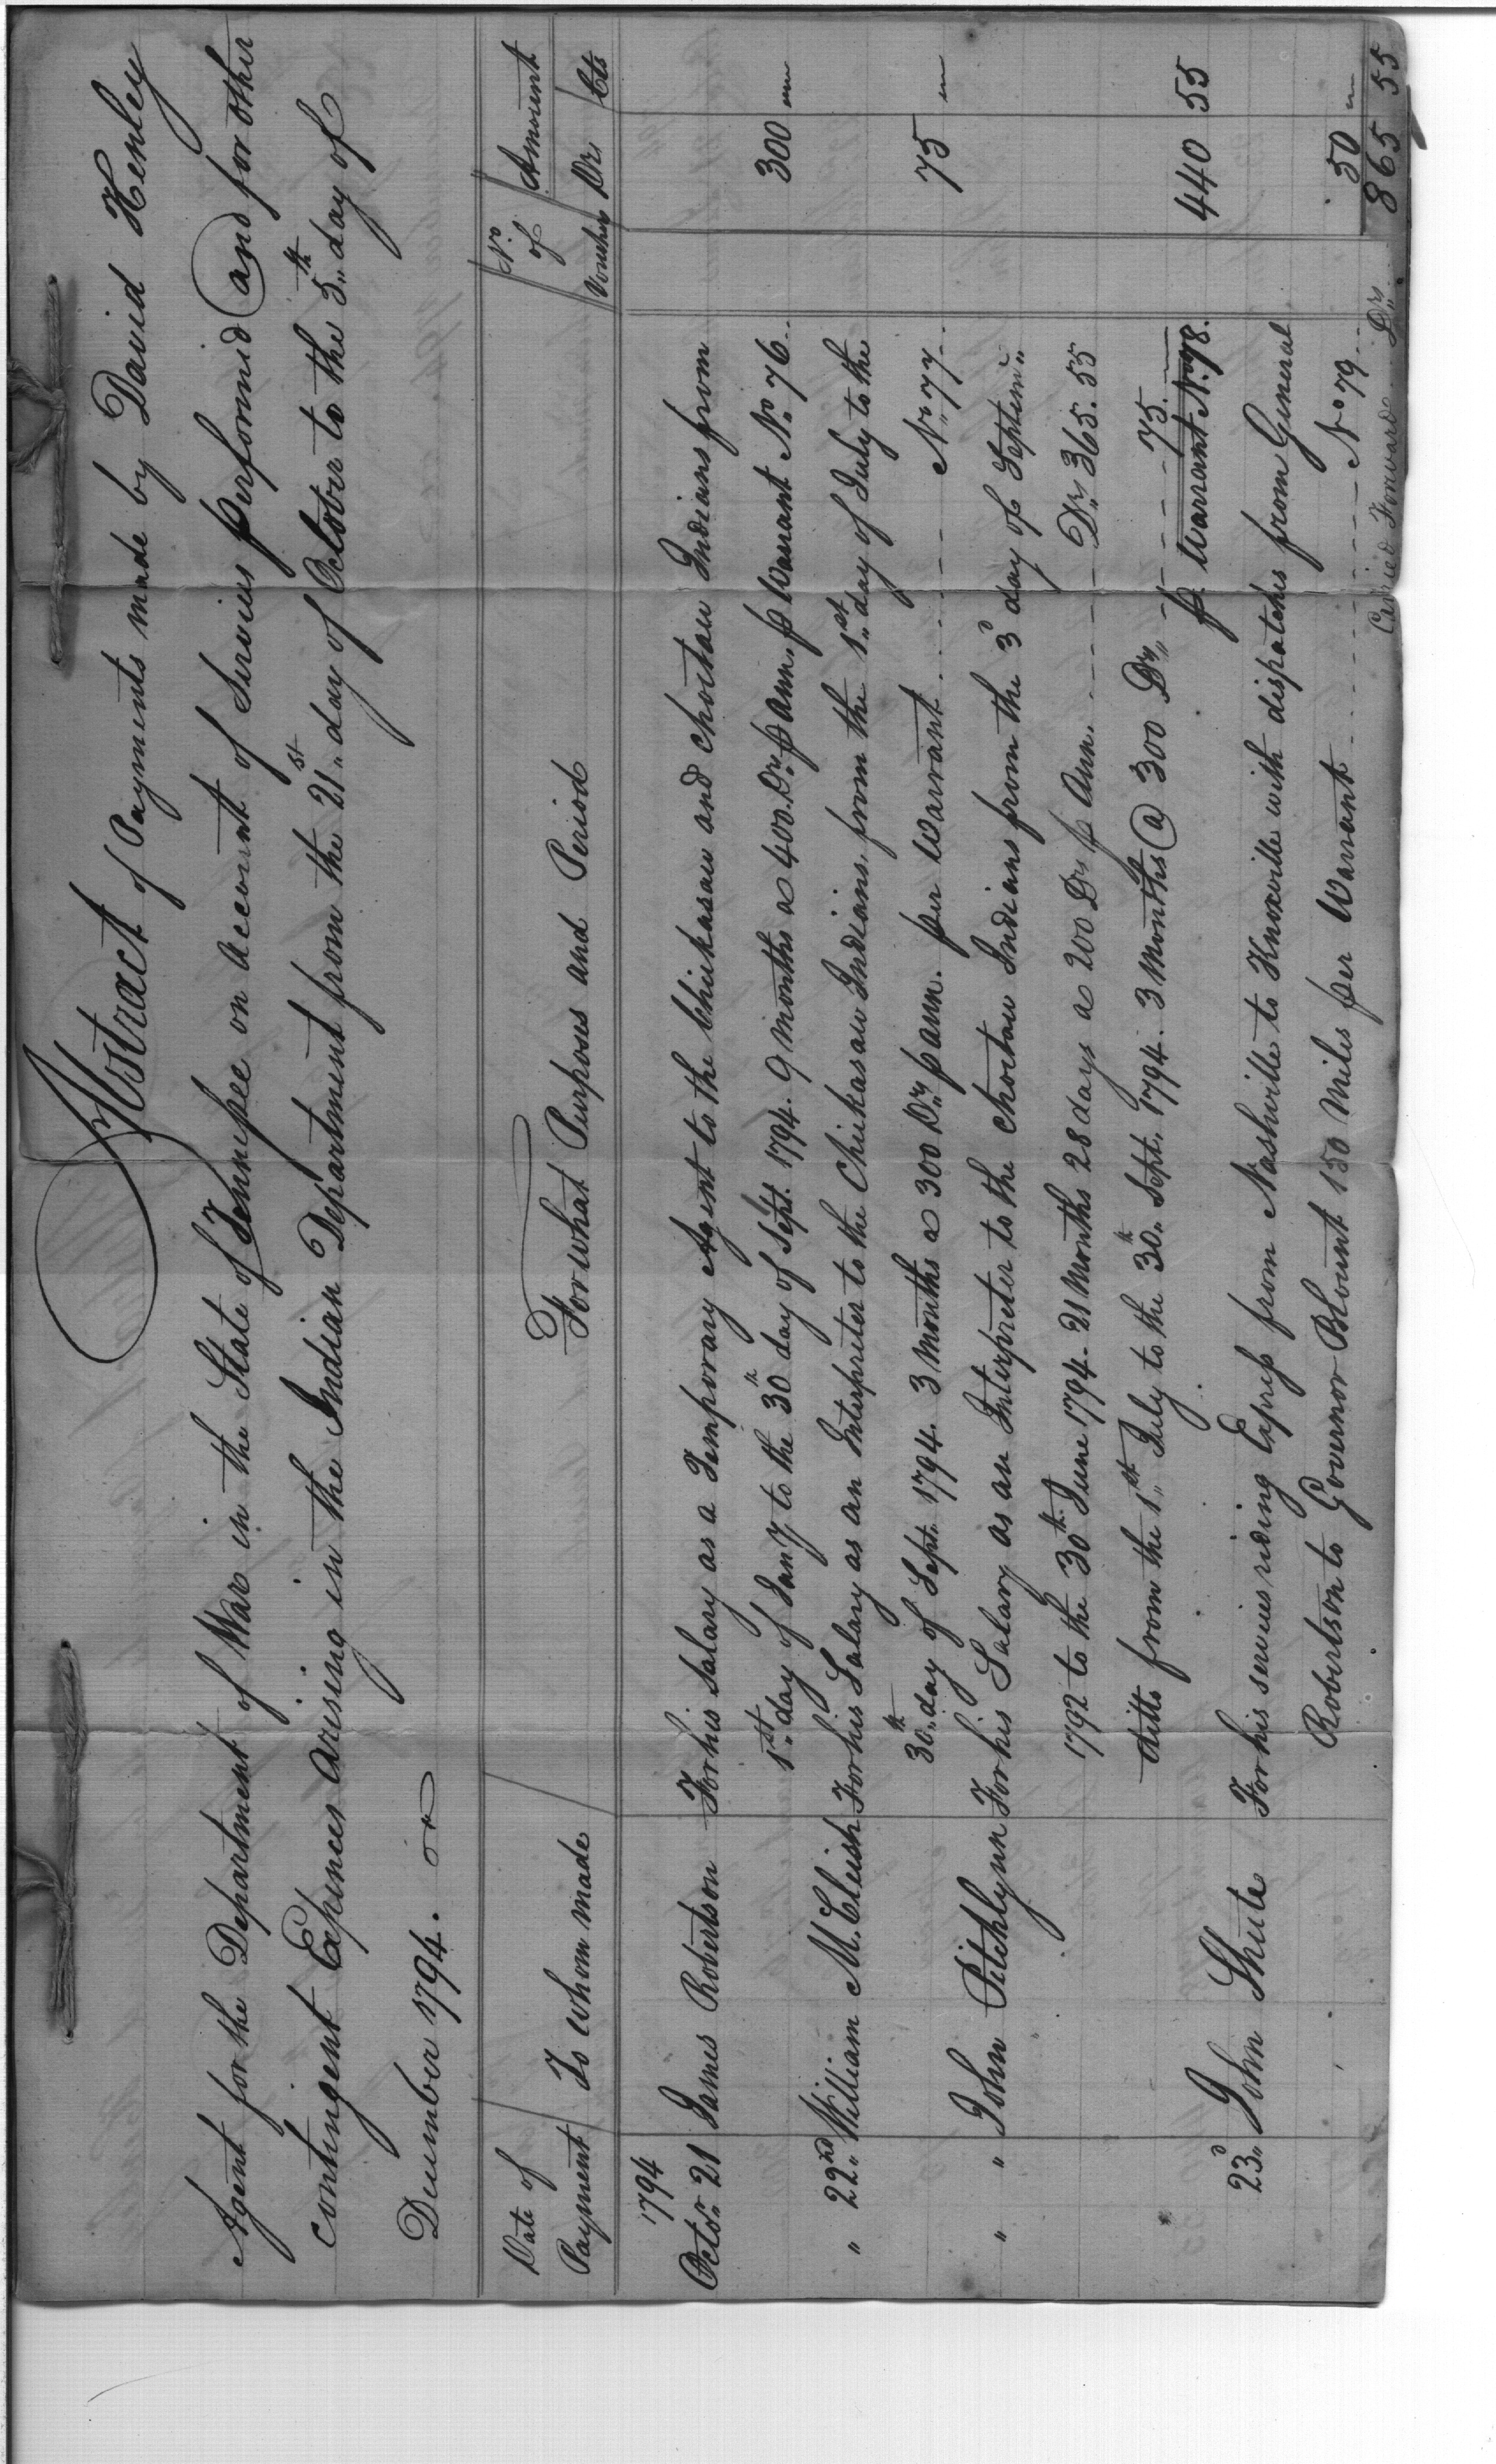 Abstract of Payments made by David Henley
Agent for the Department of War in the State of Tennessee on account of Services performid and for other
contingent Expences arising in the Indian Department from the 21st day of October to the 5th day of
December 1794.
Date of Payment To whom made For what Purposes and Period No of Voucher Amount Drs Cts
1794
Octor 21 James Robertson For his Salary as a Temporary Agent to the Chickasaw and Choctaw Indians from
1st day of Jany to the 30th day of Sept. 1794. 9 months a 400 Drs p ann. p Warrant No 76 300
" 22nd William McCleish For his Salary as an Interpreter to the Chickasaw Indians, from the 1st day of July to the
30th day of Sept. 1794. 3 months a 300 Drs p ann. per Warrant No 77 75
" " John Pitchlynn For his Salary as an Interpreter to the Choctaw Indians from the 3d day of Septem
1792 to the 30th June 1794 - 21 months 28 days a 200 Drs p Ann. Drs 365.55
ditto from the 1st July to the 30th Sept. 1794. 3 months @ 300 Drs 75.
p Warrant No 78. 440 55
23d John Shute For his services riding Express from Nashville to Knoxville with dispatches from General
Robertson to Governor Blount 150 miles per Warrant No 79 50
Carried Forward Drs 865 55